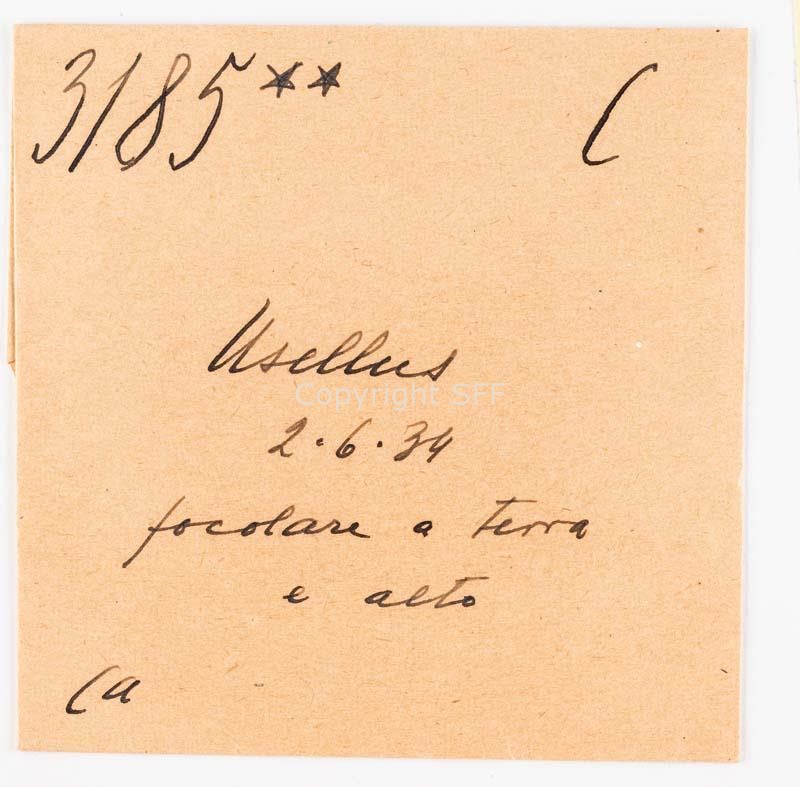 3185** C
Usellus
Copyright SFF
2.6.34
focolare a terra
e alto
Ca